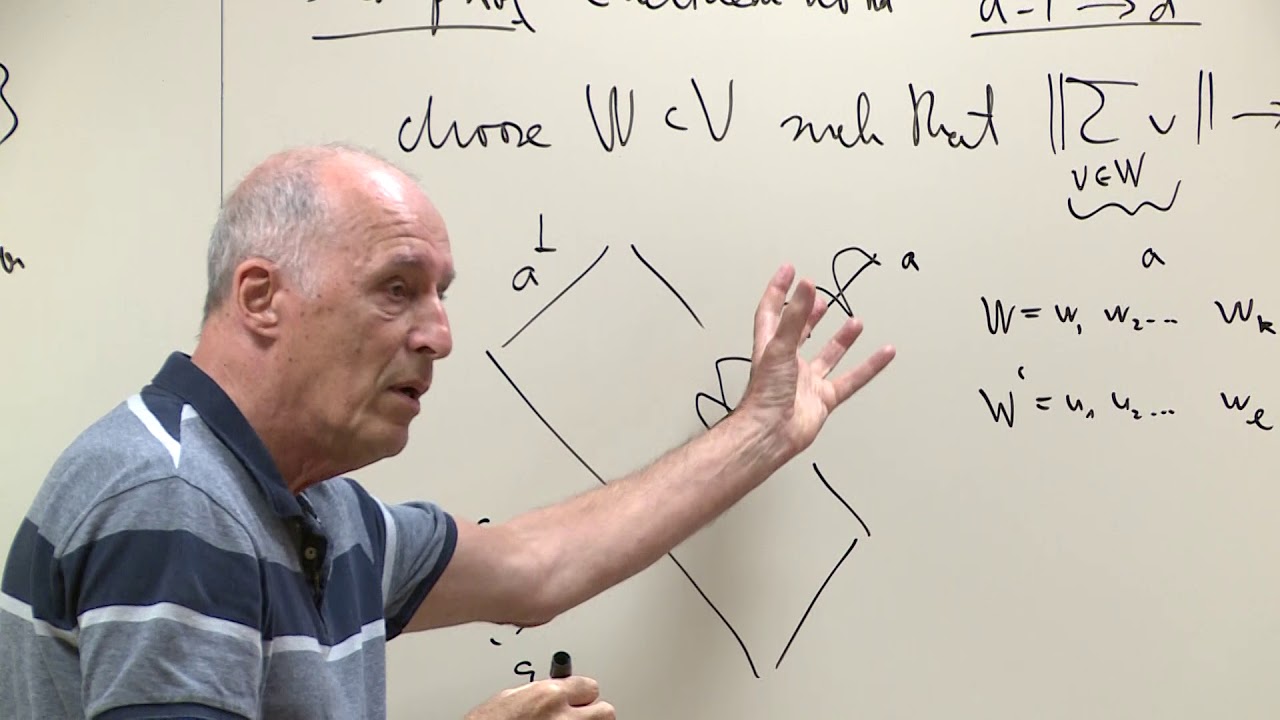 d-1 → d
choose W ⊂ V such that ‖∑ v‖ →
v∈W
a
a⊥
a
W = w₁ w₂ ... w_k
W' = u₁ u₂ ... w_ℓ